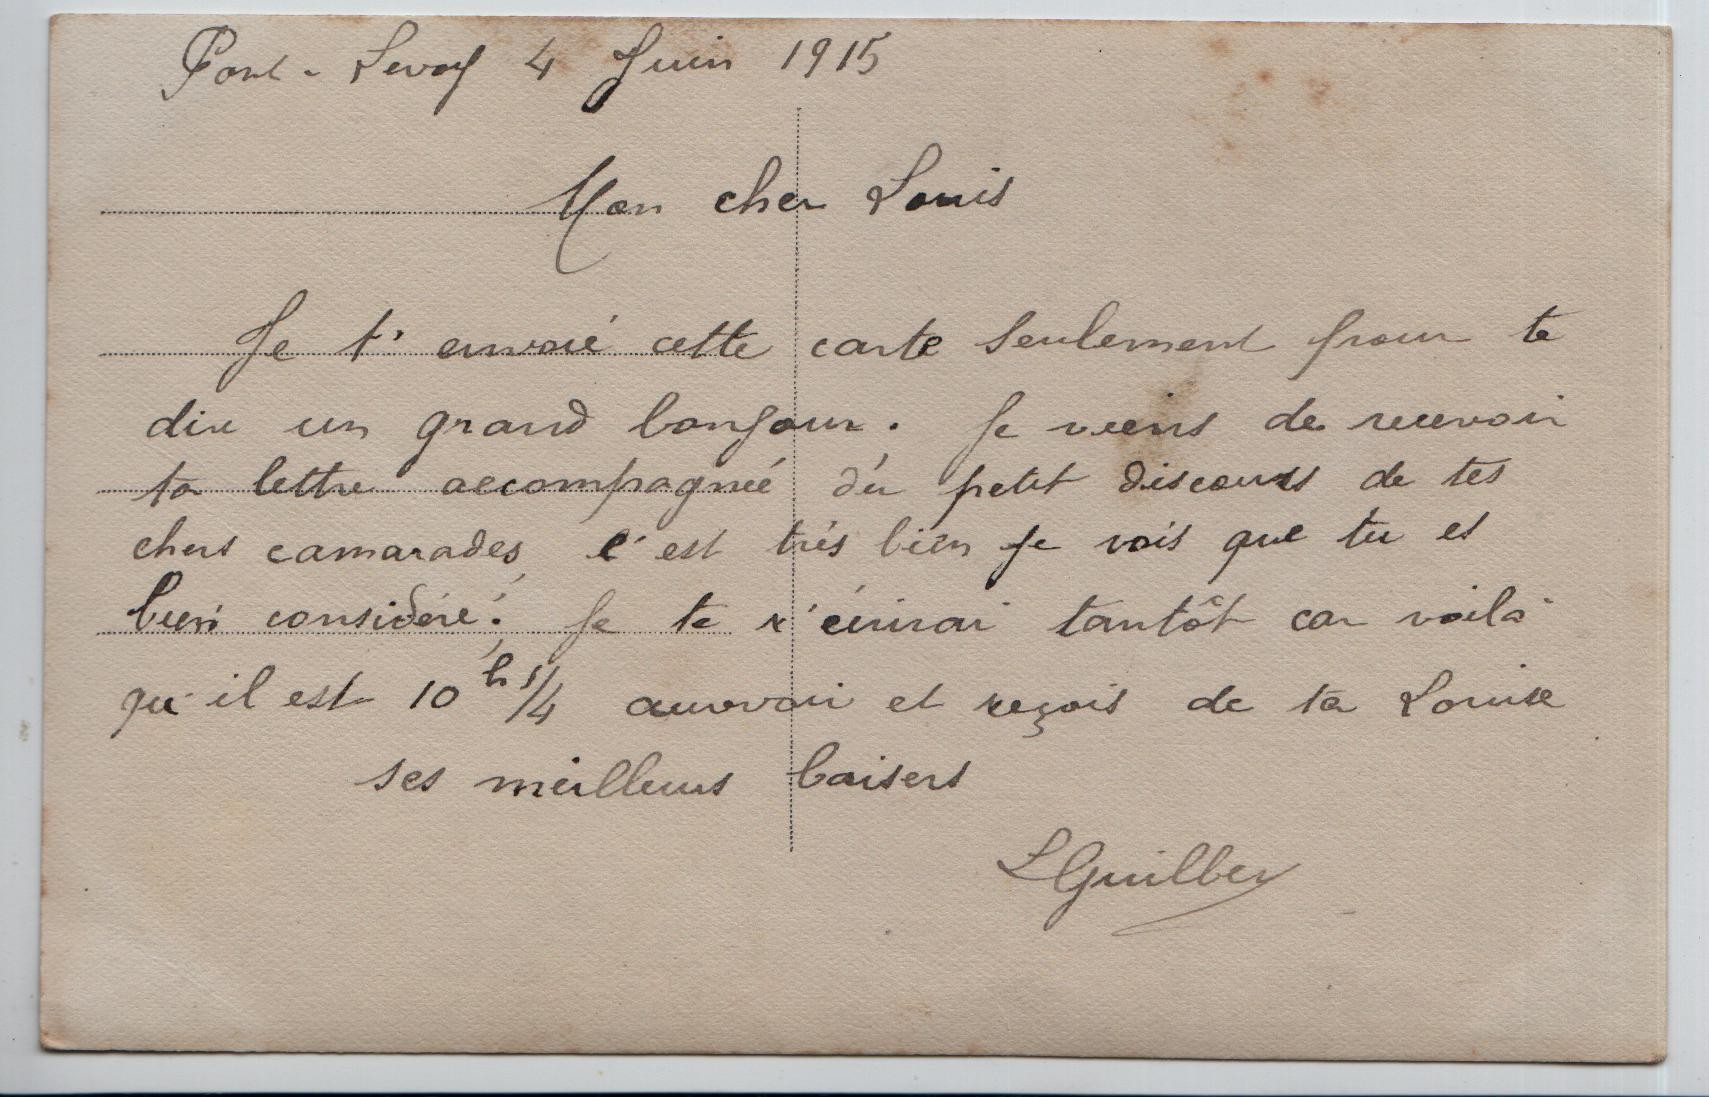 Pont-Levoy 4 Juin 1915
Mon cher Louis
Je t'envoié cette carte seulement pour te
dire un grand bonjour. Je viens de recevoir
ta lettre accompagnée du petit discours de tes
chers camarades, c'est très bien je vois que tu es
bien considéré. Je te r'écrirai tantôt car voilà
qu'il est 10 h 1/4 aurevoir et reçois de ta Louise
ses meilleurs baisers
LGuilbey